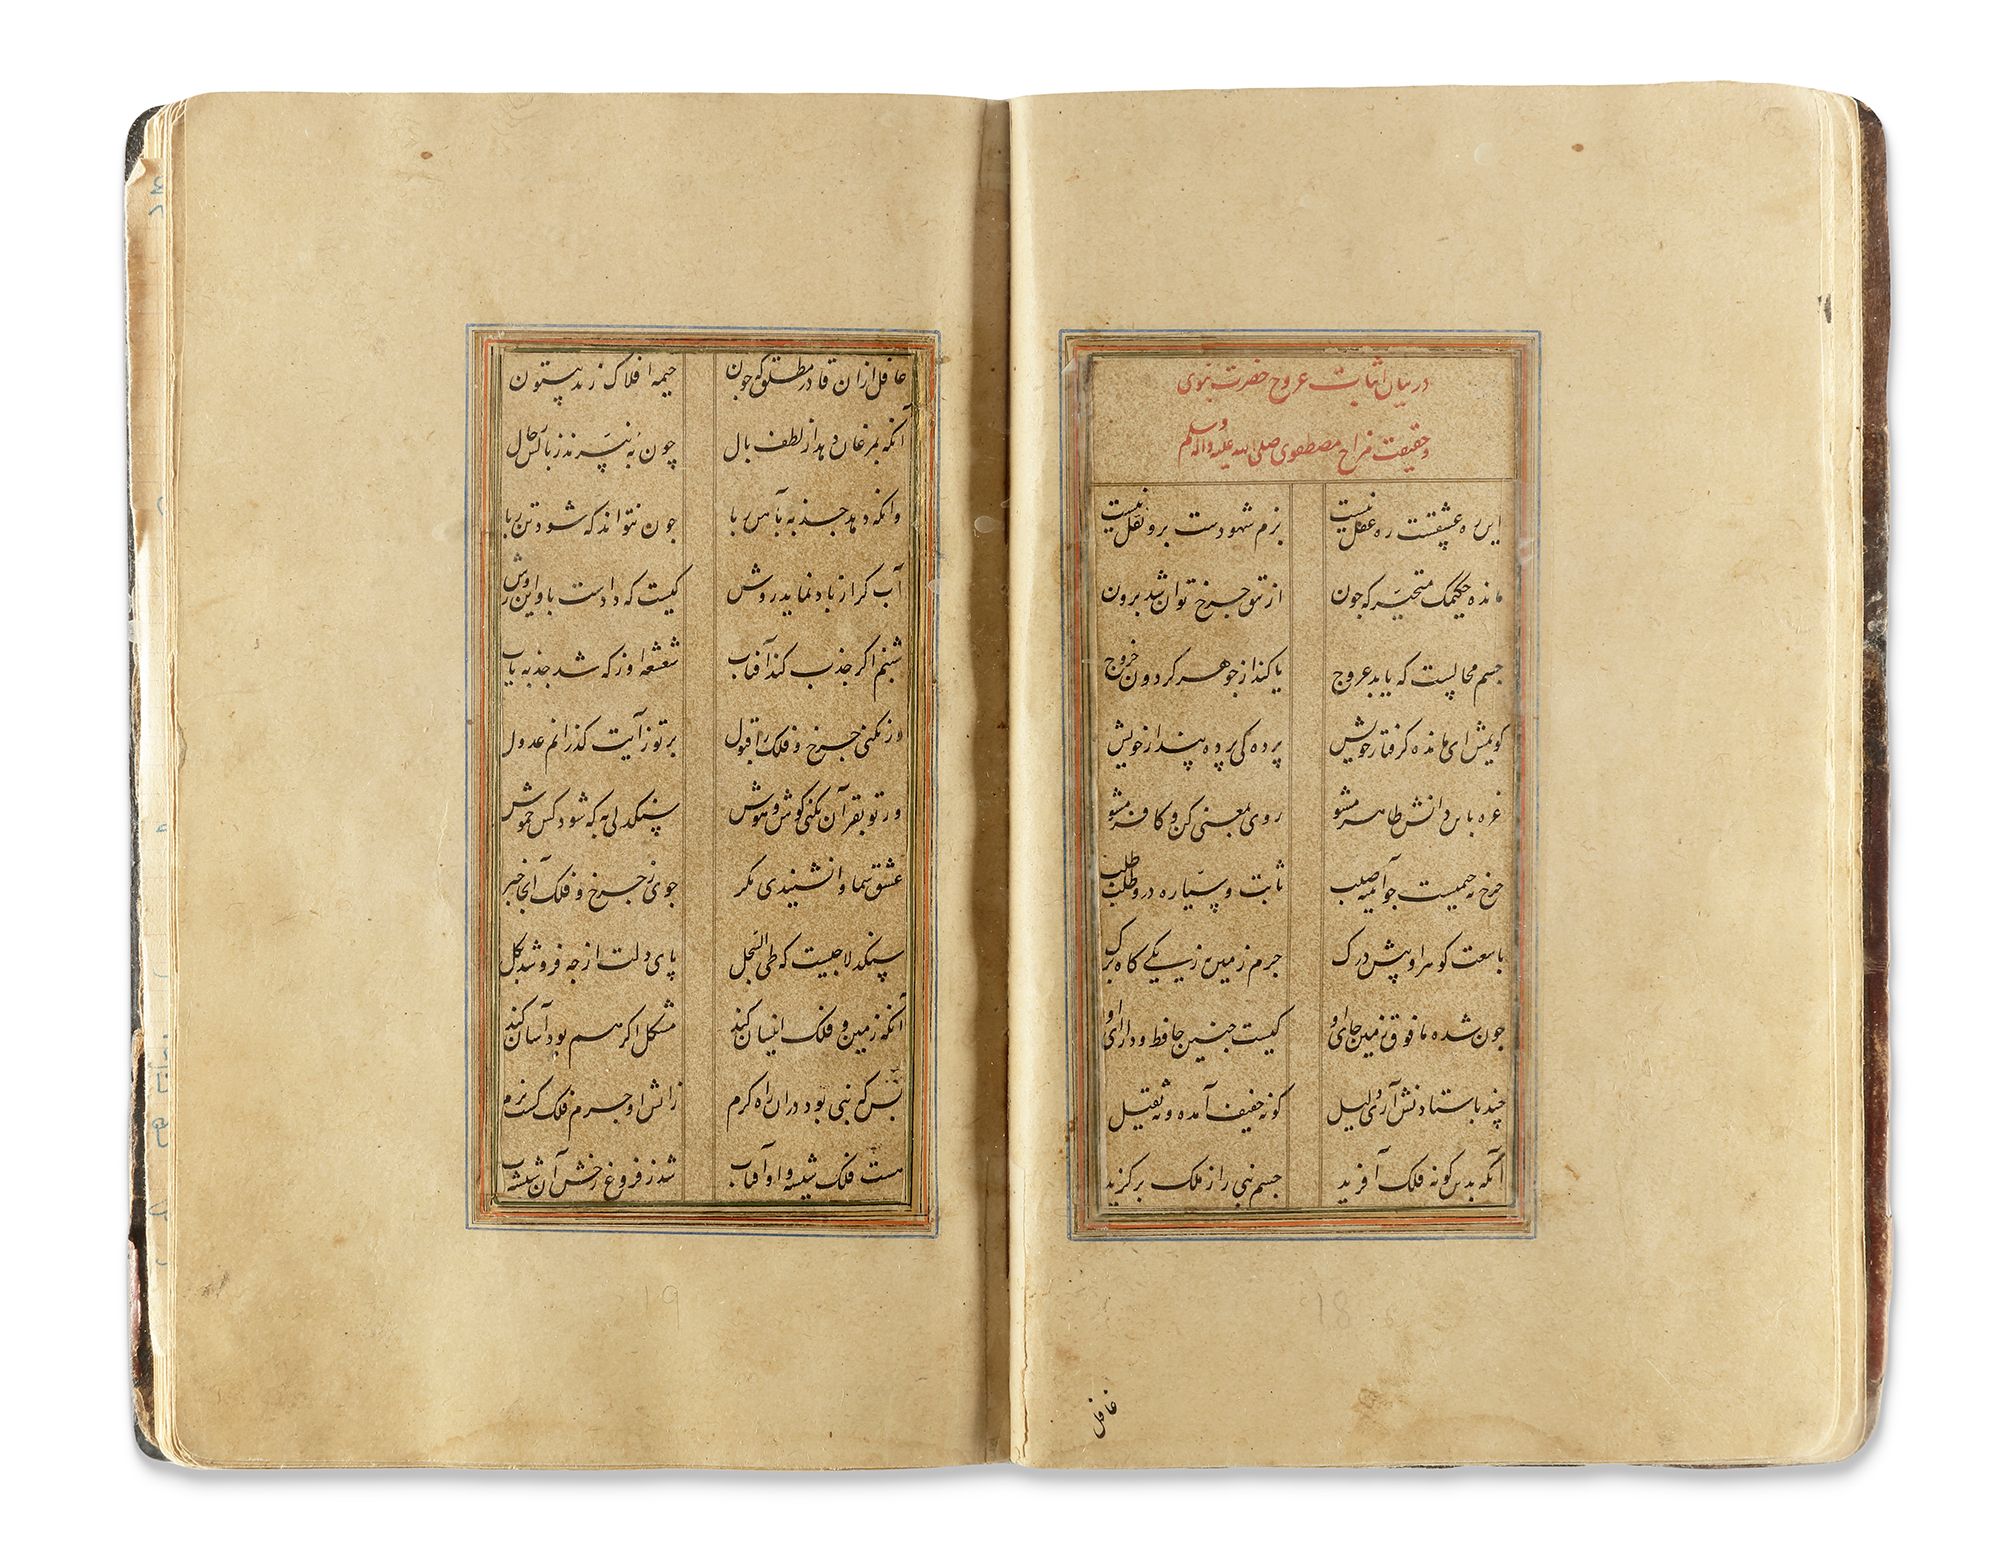 در بیان اثبات عروج حضرت نبوی
و حقیقت معراج مصطفوی صلی الله علیه واله وسلم
این ره عشقست ره عقل نیست بزم شهودست برو نقل نیست
مانده حکیمک متحیر که جون از تتق جرخ توان شد برون
جسم محالست که یابد عروج یا کند از جوهر کردون خروج
کویمش ای مانده کرفتار خویش پرده کی پرده پندار خویش
غره باین دانش ظاهر مشو روی بمعنی کن و کافر مشو
جرخ نه جسمیست جو آیینه صلب ثابت و سیاره درو
با سعت کوهر او پیش درک جرم زمین نیز یکی کاه برک
جون شده مافوق زمین جای او کیست جنین حافظ و دارای او
جند باستادنش آری دلیل کو نه خفیف آمده و نه ثقیل
آنکه بدین کونه فلک آفرید جسم نبی را ز ملک برکزید
غافل
غافل از ان قادر مطلق که جون خیمه افلاک زد بیستون
آنکه بمرغان دهد از لطف بال چون نپرند ز باکش حال
وانکه دهد جذبه بآهن ربا جون نتواند که شود تن ربا
آب کر از باد نماید روش کیست که دادست باو این روش
شبنم اکر جذب کند آفتاب شعشعه او ز که شد جذبه یاب
ور نکنی جرخ و فلک را قبول بر تو ز آیت کذرانم عدول
ور تو بقرآن نکنی کوش و هوش سنکدلی به که شود کس خموش
عشق سما وا نشنیدی مکر جوی ز جرخ و فلک آنجا خبر
سنکدلا جیست که طی السجل پای دلت از جه فرو شد بکل
آنکه زمین و فلک انسان کند مشکل اکر هم بود آسان کند
بس که نبی بود دران راه کرم زآتش او جرم فلک کشت نرم
هست فلک شیشه و او آفتاب شد ز فروغ رخش آن شیشه آب
19
18